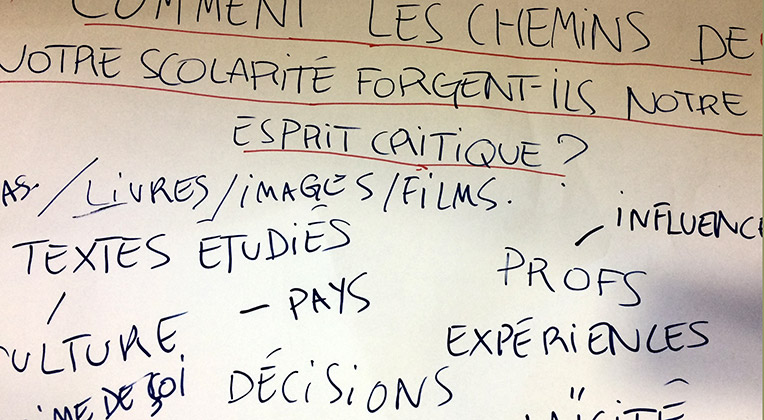 COMMENT LES CHEMINS DE
NOTRE SCOLARITÉ FORGENT-ILS NOTRE
ESPRIT CRITIQUE ?
/ LIVRES / IMAGES / FILMS.
INFLUENCE
TEXTES ÉTUDIÉS
PROFS
- PAYS
CULTURE
EXPÉRIENCES
DE SOI
DÉCISIONS